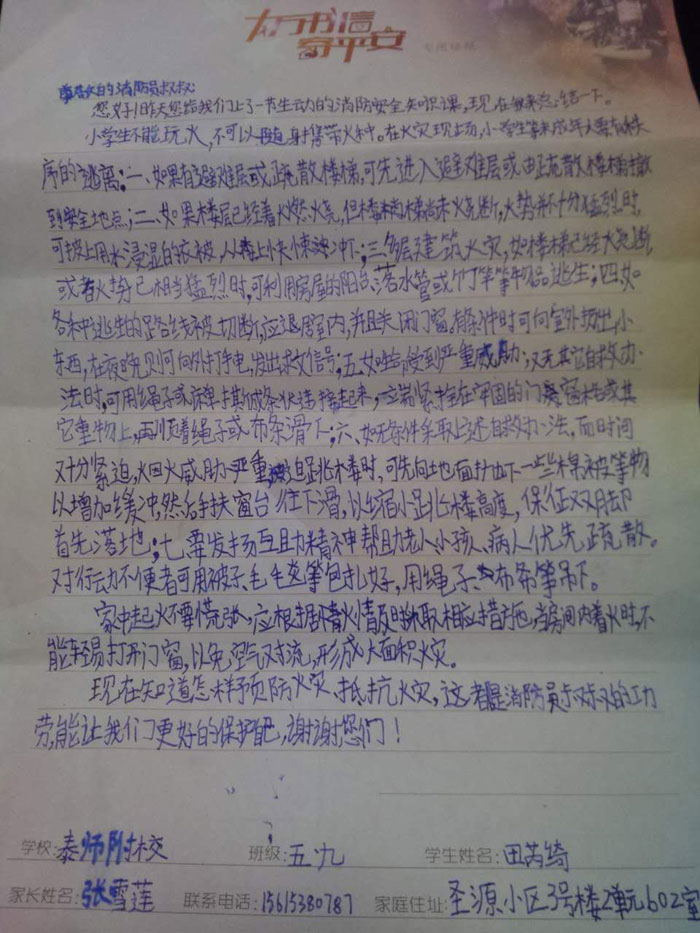 万书信
寄平安
专用信纸
尊敬的消防员叔叔：
您好！昨天您给我们上了一节生动的消防安全知识课，现在我来总结一下。
小学生不能玩火，不可以随身携带火种。在火灾现场，小学生等未成年人要有秩
序的逃离：一、如果有避难层或疏散楼梯，可先进入避难层或由疏散楼梯撤
到安全地点；二、如果楼层已经着火燃烧，但楼梯尚未烧断，火势并不十分猛烈时，
可披上用水浸湿的衣被，从楼上快速冲下；三、多层建筑火灾，如楼梯已经烧断
或者火势已相当猛烈时，可利用房屋的阳台、落水管或竹竿等物品逃生；四、如
各种逃生的路线被切断，应退居室内，并且关闭门窗。有条件时可向室外扔出小
东西，在夜晚则可向外打手电，发出求救信号；五、如生命受到严重威胁，又无其它自救办
法时，可用绳子或床单撕成条状连接起来，一端紧拴在牢固的门窗格或其
它重物上，再顺着绳子或布条滑下；六、如无条件采取上述自救办法，而时间
十分紧迫，烟火威胁严重，被迫跳楼时，可先向地面扔下一些棉被等物
以增加缓冲，然后手扶窗台往下滑，以缩小跳楼高度，保证双脚
首先落地；七、要发扬互助精神帮助老人、小孩、病人优先疏散。
对行动不便者可用被子、毛毯等包扎好，用绳子、布条等吊下。
家中起火不要慌张，应根据火情及时采取相应措施，当房间内着火时，不
能轻易打开门窗，以免空气对流，形成大面积火灾。
现在知道怎样预防火灾、抵抗火灾，这都是消防员叔叔的功
劳，能让我们更好的保护自己，谢谢您们！
学校：泰师附校 班级：五.九 学生姓名：田芮绮
家长姓名：张雪莲 联系电话：15615380787 家庭住址：圣源小区3号楼2单元602室